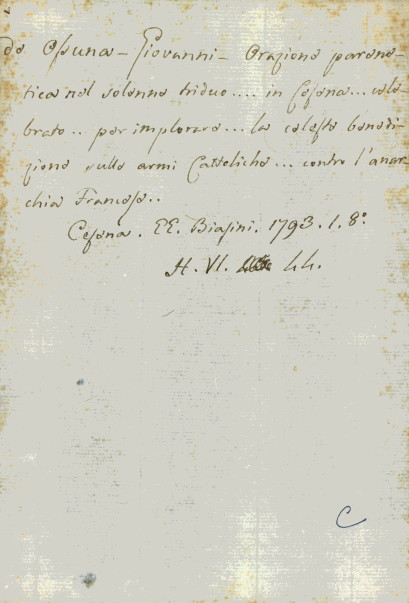 de Ossuna - Giovanni - Orazione parene-
tica nel solenne triduo.... in Cesena... cele-
brato.. per implorare... la celeste benedi-
zione sulle armi Cattoliche... contro l'anar-
chia Francese..
Cesena. EE. Biasini. 1793. 1. 8°
H. VI. 44.
C